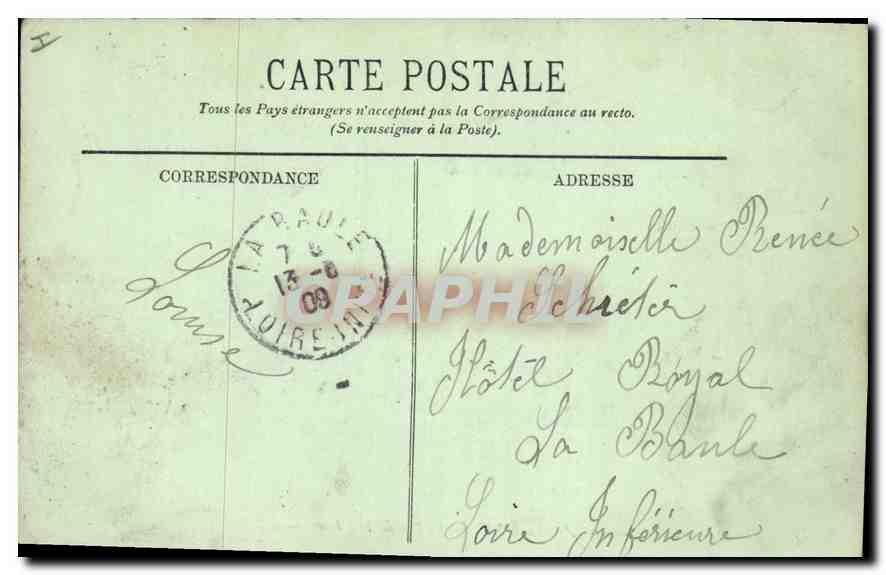 CARTE POSTALE
Tous les Pays étrangers n'acceptent pas la Correspondance au recto.
(Se renseigner à la Poste).
CORRESPONDANCE
ADRESSE
LA BAULE
13-8
09
LOIRE-INF
Louise
Mademoiselle Renée
Hôtel Royal
La Baule
Loire Inférieure
CPAPHIL